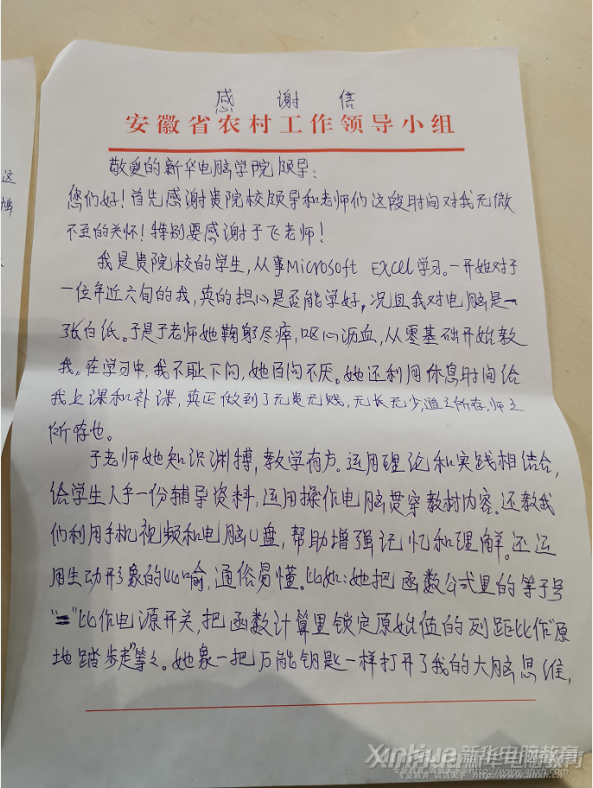 感谢信
安徽省农村工作领导小组
敬爱的新华电脑学院领导:
您们好!首先感谢贵院校领导和老师们这段时间对我无微
不至的关怀!特别要感谢于飞老师!
我是贵院校的学生,从事Microsoft Excel学习。一开始对于
一位年近六旬的我,真的担心是否能学好,况且我对电脑是一
张白纸。于是于老师她鞠躬尽瘁,呕心沥血,从零基础开始教
我。在学习中,我不耻下问,她百问不厌。她还利用休息时间给
我上课和补课,真正做到了无贵无贱,无长无少,道之所存,师之
所存也。
于老师她知识渊博,教学有方。运用理论和实践相结合,
给学生人手一份辅导资料,运用操作电脑贯穿教材内容。还教我
们利用手机视频和电脑U盘,帮助增强记忆和理解。还运
用生动形象的比喻,通俗易懂。比如:她把函数公式里的等于号
"="比作电源开关,把函数计算里锁定原始值的列距比作"原
地踏步走"等々。她象一把万能钥匙一样打开了我的大脑思维,
这
博
Xinhua新华电脑教育